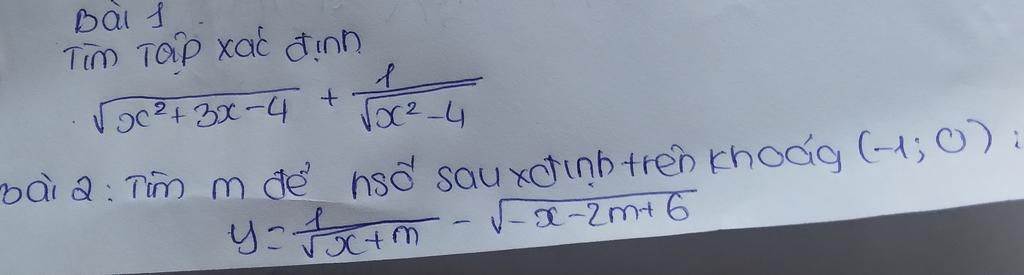 Bài 1
Tìm Tập xác định
√(x²+3x-4) + 1/√(x²-4)
Bài 2: Tìm m để hsố sau xđịnh trên khoảg (-1; 0):
y = 1/√(x+m) - √(-x-2m+6)